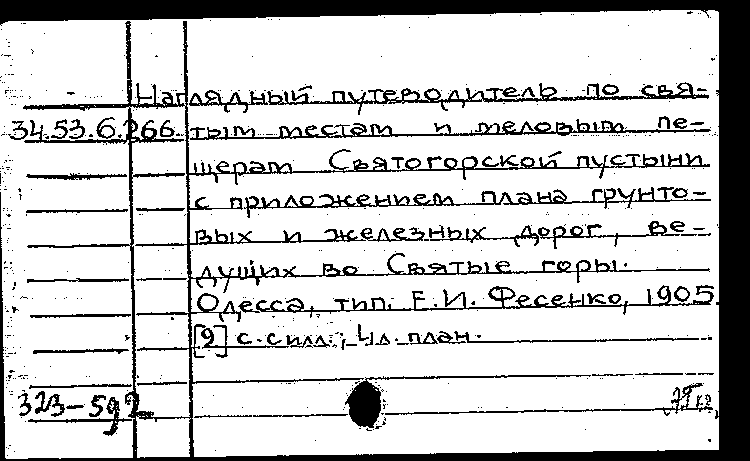 Наглядный путеводитель по свя-
34.53.6.266. тым местам и меловым пе-
щерам Святогорской пустыни
с приложением плана грунто-
вых и железных дорог, ве-
дущих во Святые горы.
Одесса, тип. Е.И. Фесенко, 1905.
[9] с. с илл.; 4л. план.
323-592